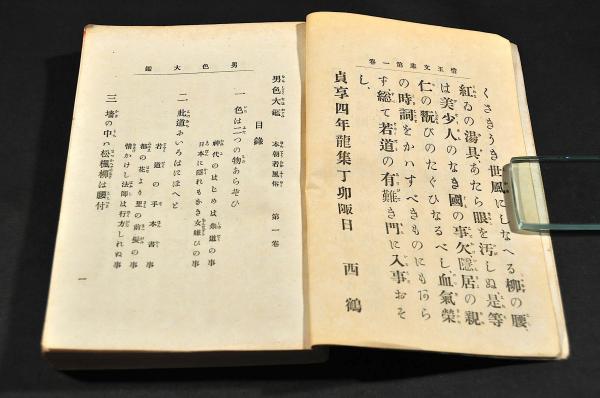 惜玉文庫第一卷
くさきうき世風にしなへる柳の腰、
紅ゐの湯具、あたら眼を汚しぬ、是等
は美少人のなき國の事欠、隠居の親
仁の翫びのたぐひなるべし、血氣榮
の時詞をかハすべきものにもあら
ず、総て若道の有難き門に入事おそ
し、
貞享四年龍集丁卯陬日　西鶴
男色大鑑
男色大鑑　本朝若風俗　第一卷
目錄
一　色は二つの物あらそひ
神代のはじめは衆道の事
日本に隠れもなき女嫌ひの事
二　此道にいろはにほへと
若道の手本書事
都の花より里の前髪の事
情かけし法師は行方しれぬ事
三　墻の中ハ松楓柳は腰付
一